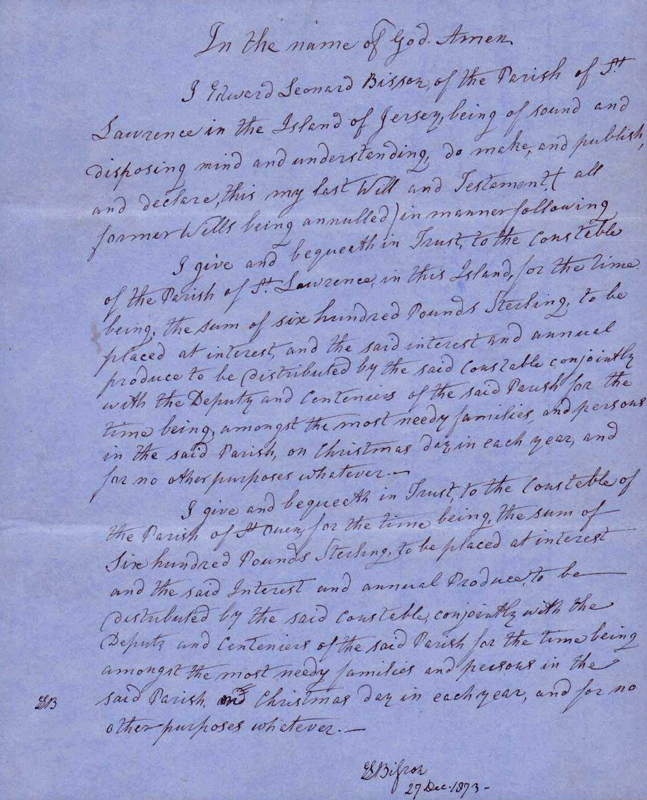 In the name of God. Amen.
I Edward Leonard Bisson, of the Parish of St
Lawrence in the Island of Jersey, being of sound and
disposing mind and understanding, do make, and publish,
and declare, this my last Will and Testament, (all
former Wills being annulled) in manner following
I give and bequeath in Trust, to the Constable
of the Parish of St. Lawrence, in this Island, for the time
being, the sum of six hundred Pounds Sterling, to be
placed at interest, and the said interest and annual
produce to be distributed by the said Constable conjointly
with the Deputy and Centeniers of the said Parish for the
time being, amongst the most needy families, and persons
in the said Parish, on Christmas day in each year, and
for no other purposes whatever.—
I give and bequeath in Trust, to the Constable of
the Parish of St Ouen, for the time being, the sum of
Six hundred Pounds Sterling, to be placed at interest
and the said Interest and annual Produce, to be
distributed by the said Constable, conjointly with the
Deputy and Centeniers of the said Parish for the time being
amongst the most needy families and persons in the
said Parish, on Christmas day in each year, and for no
other purposes whatever.—
ELB
ELBisson
27 Dec. 1873-